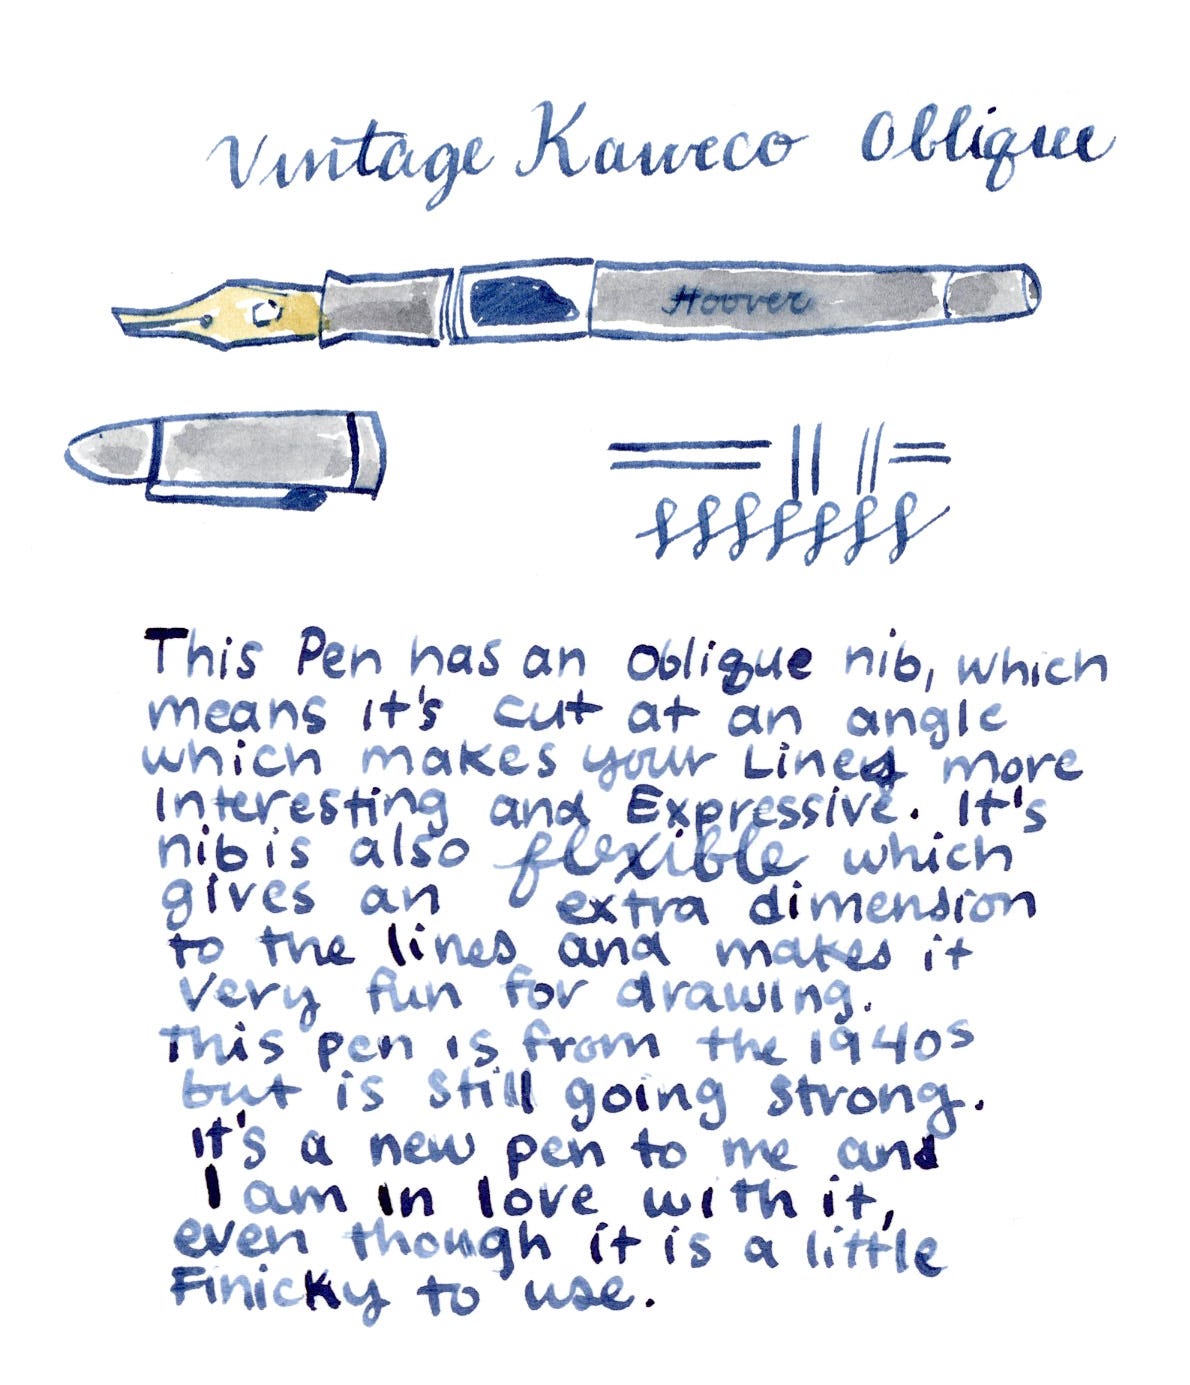 Vintage Kaweco Oblique
Hoover
This Pen has an Oblique nib, which
means it's cut at an angle
which makes your Lines more
Interesting and Expressive. It's
nib is also flexible which
gives an extra dimension
to the lines and makes it
Very fun for drawing.
This pen is from the 1940s
but is still going strong.
It's a new pen to me and
I am in love with it,
even though it is a little
Finicky to use.